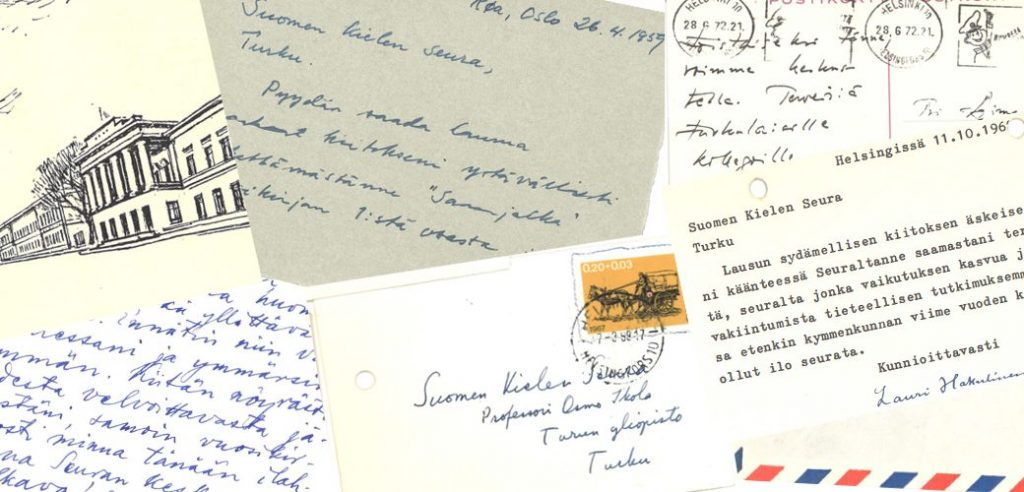 Röa, Oslo 26.4.1959
Suomen Kielen Seura,
Turku.
Pyydän saada lausua
kiitokseni ystävällisesti
"Sananjalka"
1:stä vuosta
HELSINKI 10
28.6.72.21.
HELSINGFORS 10
POSTIKORTTI
HELSINKI 10
28.6.72.21.
HELSINGFORS 10
voimme keskus-
tella. Terveisiä
turkulaisille
kollegoille
Helsingissä 11.10.196
Suomen Kielen Seura
Turku
Lausun sydämellisen kiitoksen äskeise
ni käänteessä Seuraltanne saamastani ter
tä, seuralta jonka vaikutuksen kasvua j
vakiintumista tieteellisen tutkimuksemm
sa etenkin kymmenkunnan viime vuoden k
ollut ilo seurata.
Kunnioittavasti
Lauri Hakulinen
0.20+0.03
1967
HELSINGFORS 10
Suomen Kielen Seura
Professori Osmo Ikola
Turun yliopisto
Turku
yllättävä
niin
ressani ja ymmärsin
mmän. Kiitän nöyräst
desta velvoittavasta jä-
stäni, samoin vuosikir-
osti minua tänään ilah-
na Seuran